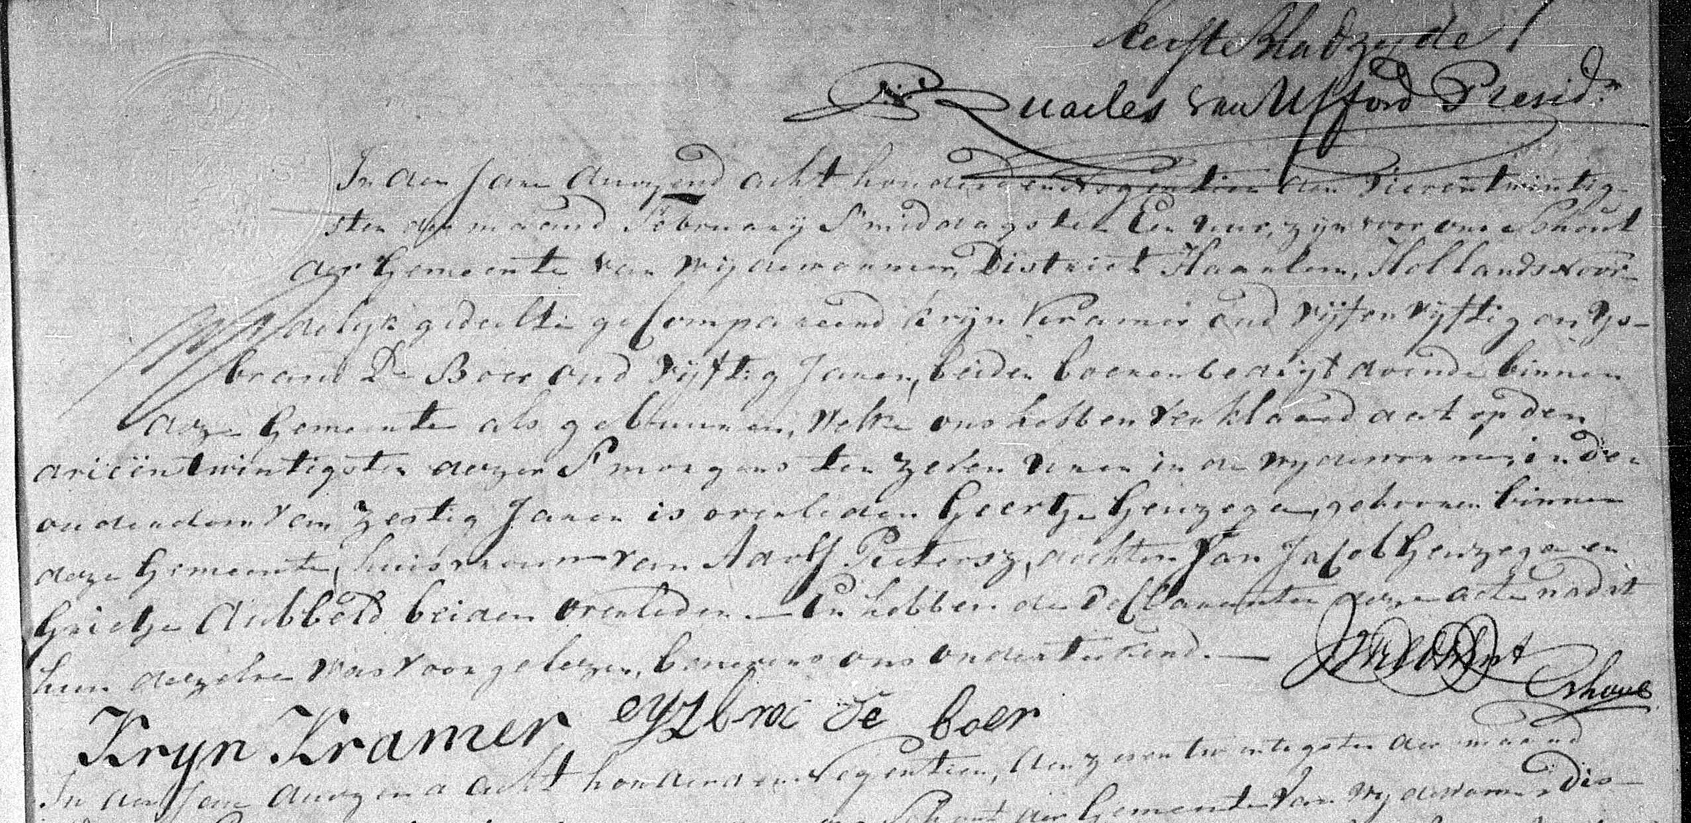 Eerste Bladzyde
Quarles van Ufford Presidt
In den Jare duyzend acht honderd en negentien den vierentwintig-
sten der maand February S'middags ten Een uur, zyn voor ons Schout
der Gemeente van Wijdewormer, District Haarlem, Hollands noor-
delyk gedeelte gecompareerd Krijn Kramer oud vijfenvyftig en Ys-
brand De Boer oud vyftig Jaren, beiden boerenbedryf doende binnen
deze Gemeente als gebuuren, welke ons hebben verklaard dat op den
drieëntwintigsten dezer S'morgens ten zeven uren in de wydewormer, in den
ouderdom van zestig Jaren is overleden Geertje Heuzega, gebooren binnen
deze Gemeente, huisvrouw van Adolf Pietersz, dochter van Jacob Heuzega en
Grietje Dubbeld beiden overleden. — En hebben de Declaranten deze acte nadat
hun dezelve was voorgelezen, benevens ons ondertekend. —
Schout
Kryn Kramer eyzbrac de boer
In den Jare duyzend acht honderd en negentien, den zevenentwintigsten der maand
Schout der Gemeente van wydewormer Dis-